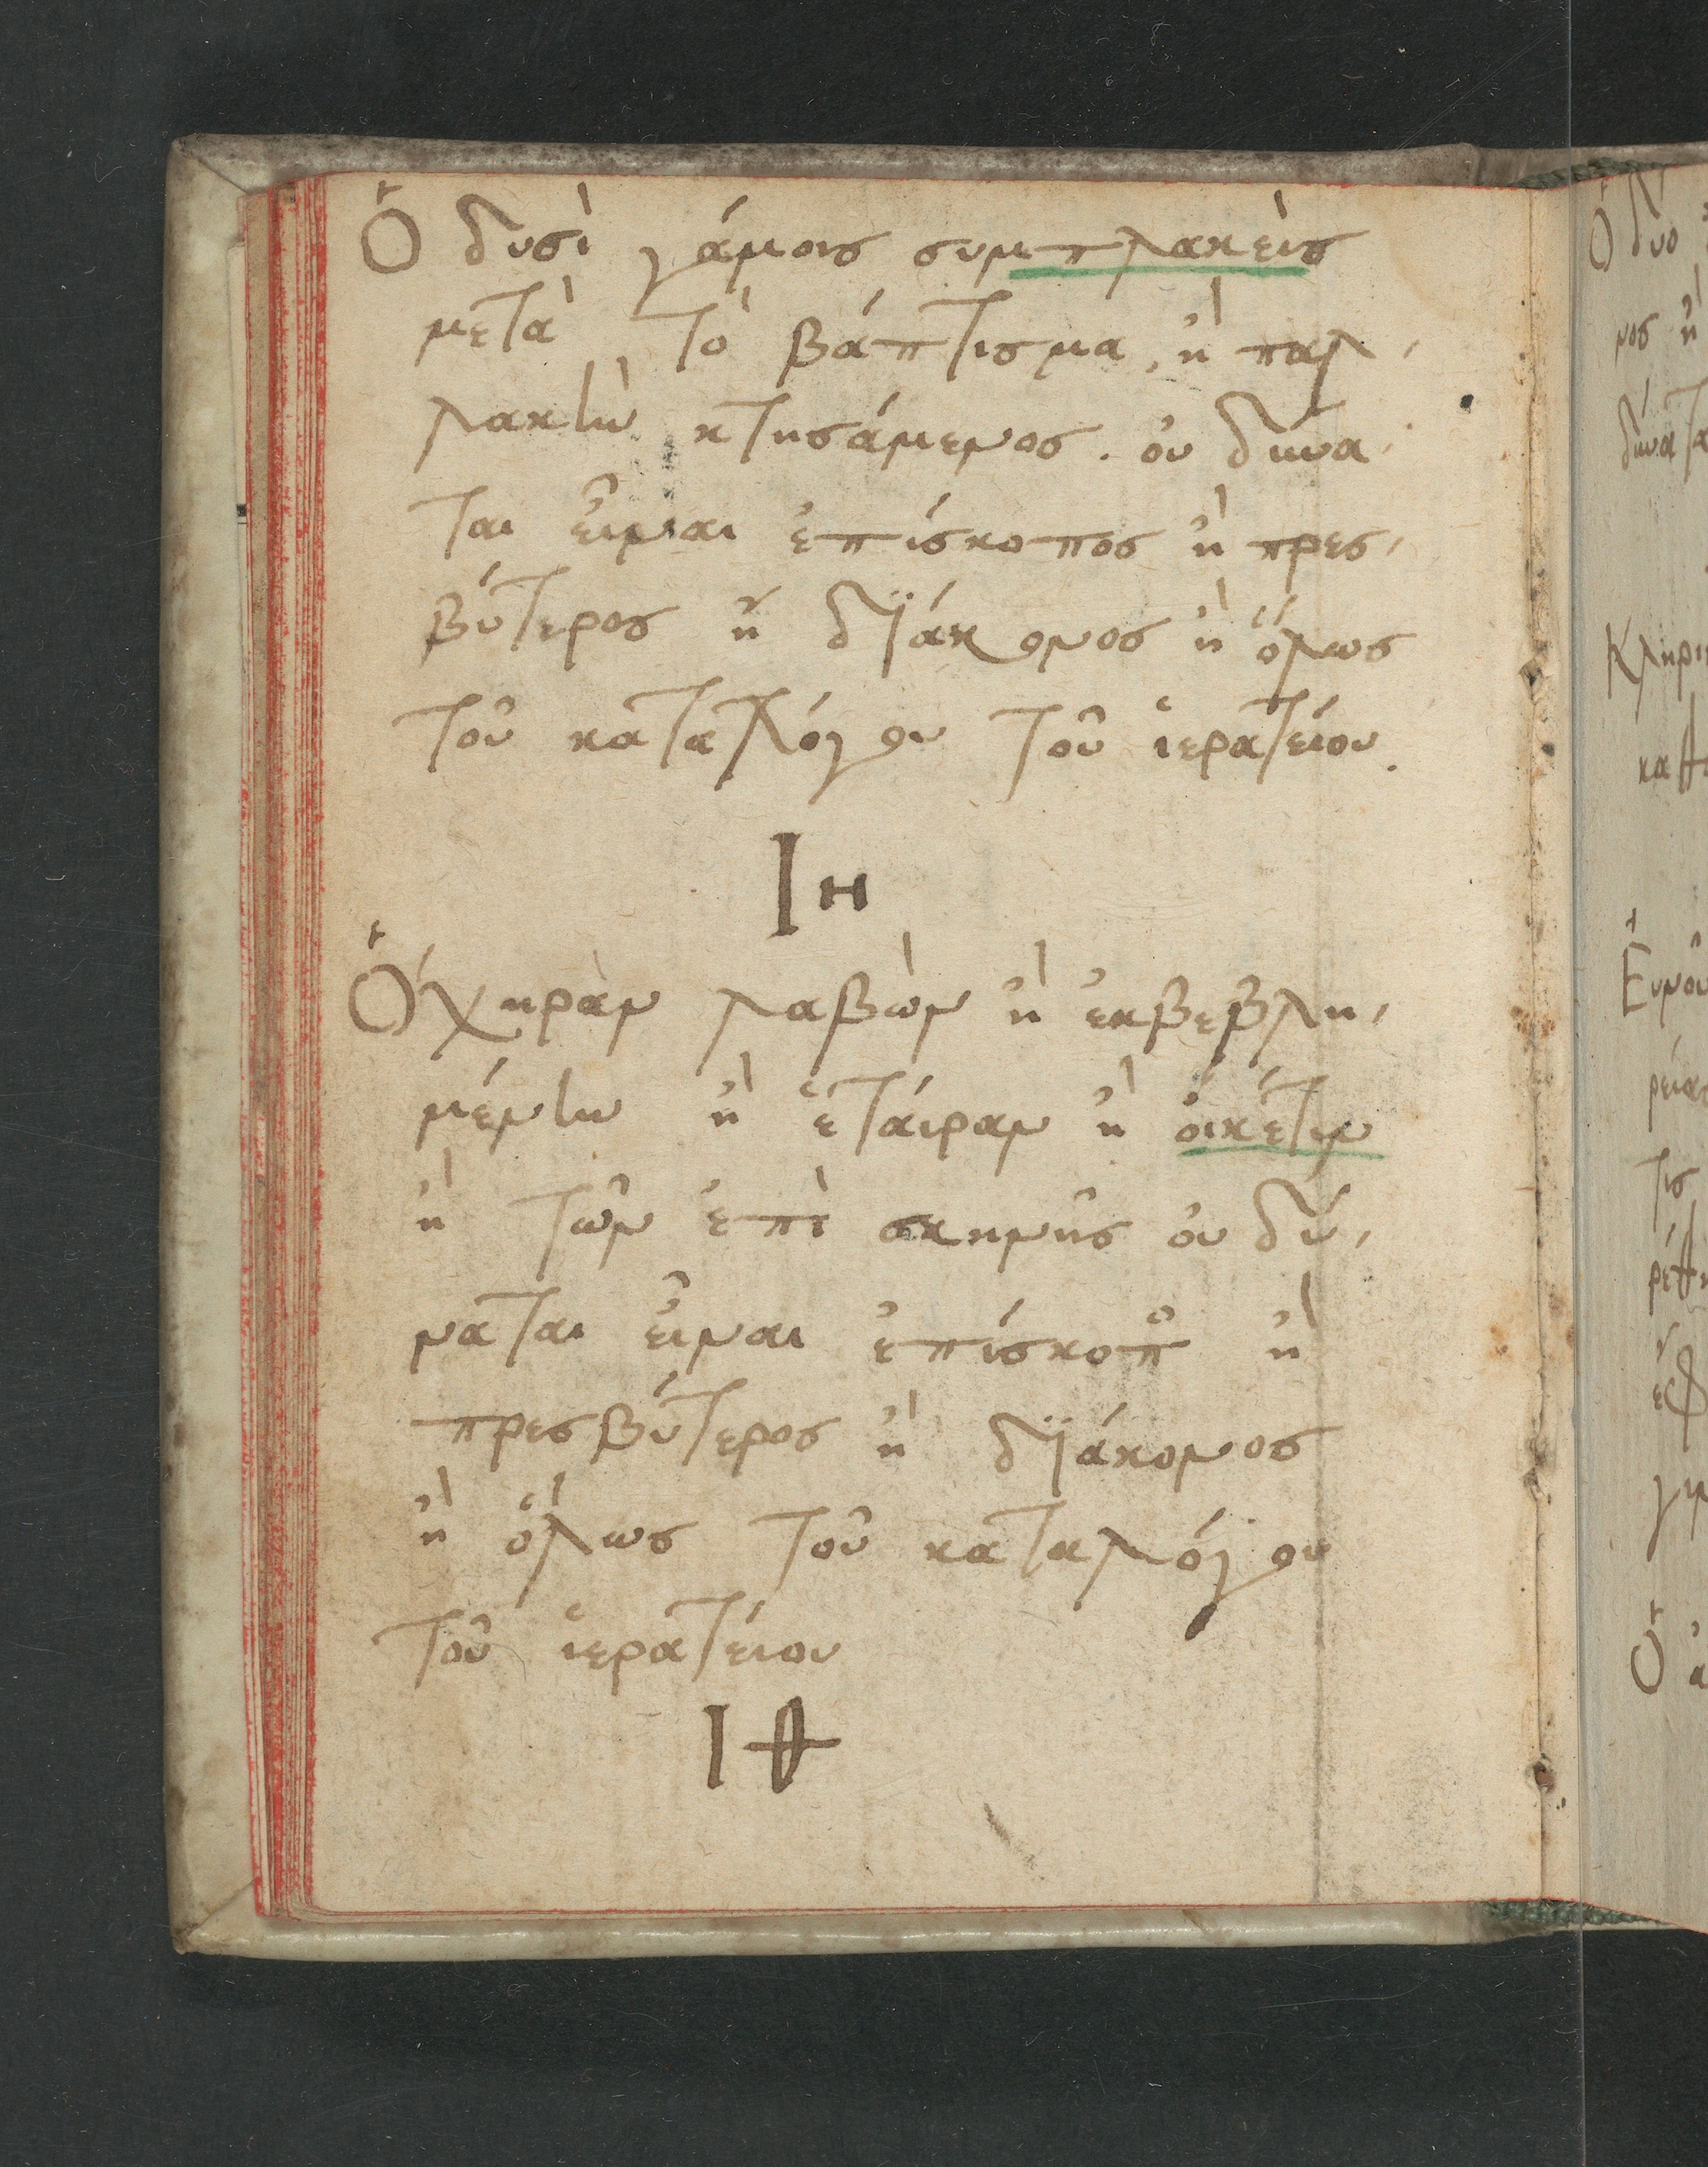 Ὁ δυσὶ γάμοις συμπλακεὶς
μετὰ τὸ βάπτισμα, ἢ παλ,
λακὴν κτησάμενος. οὐ δύνα,
ται εἶναι ἐπίσκοπος ἢ πρες,
βύτερος ἢ διάκονος ἢ ὅλως
τοῦ καταλόγου τοῦ ἱερατείου.
Ιη
Ὁ χηρὰν λαβὼν ἢ ἐκβεβλη,
μένην ἢ ἑταίραν ἢ οἰκέτιν
ἢ τῶν ἐπὶ σκηνῆς οὐ δύ,
ναται εἶναι ἐπίσκοπο ἢ
πρεσβύτερος ἢ διάκονος
ἢ ὅλως τοῦ καταλόγου
τοῦ ἱερατείου
Ιθ